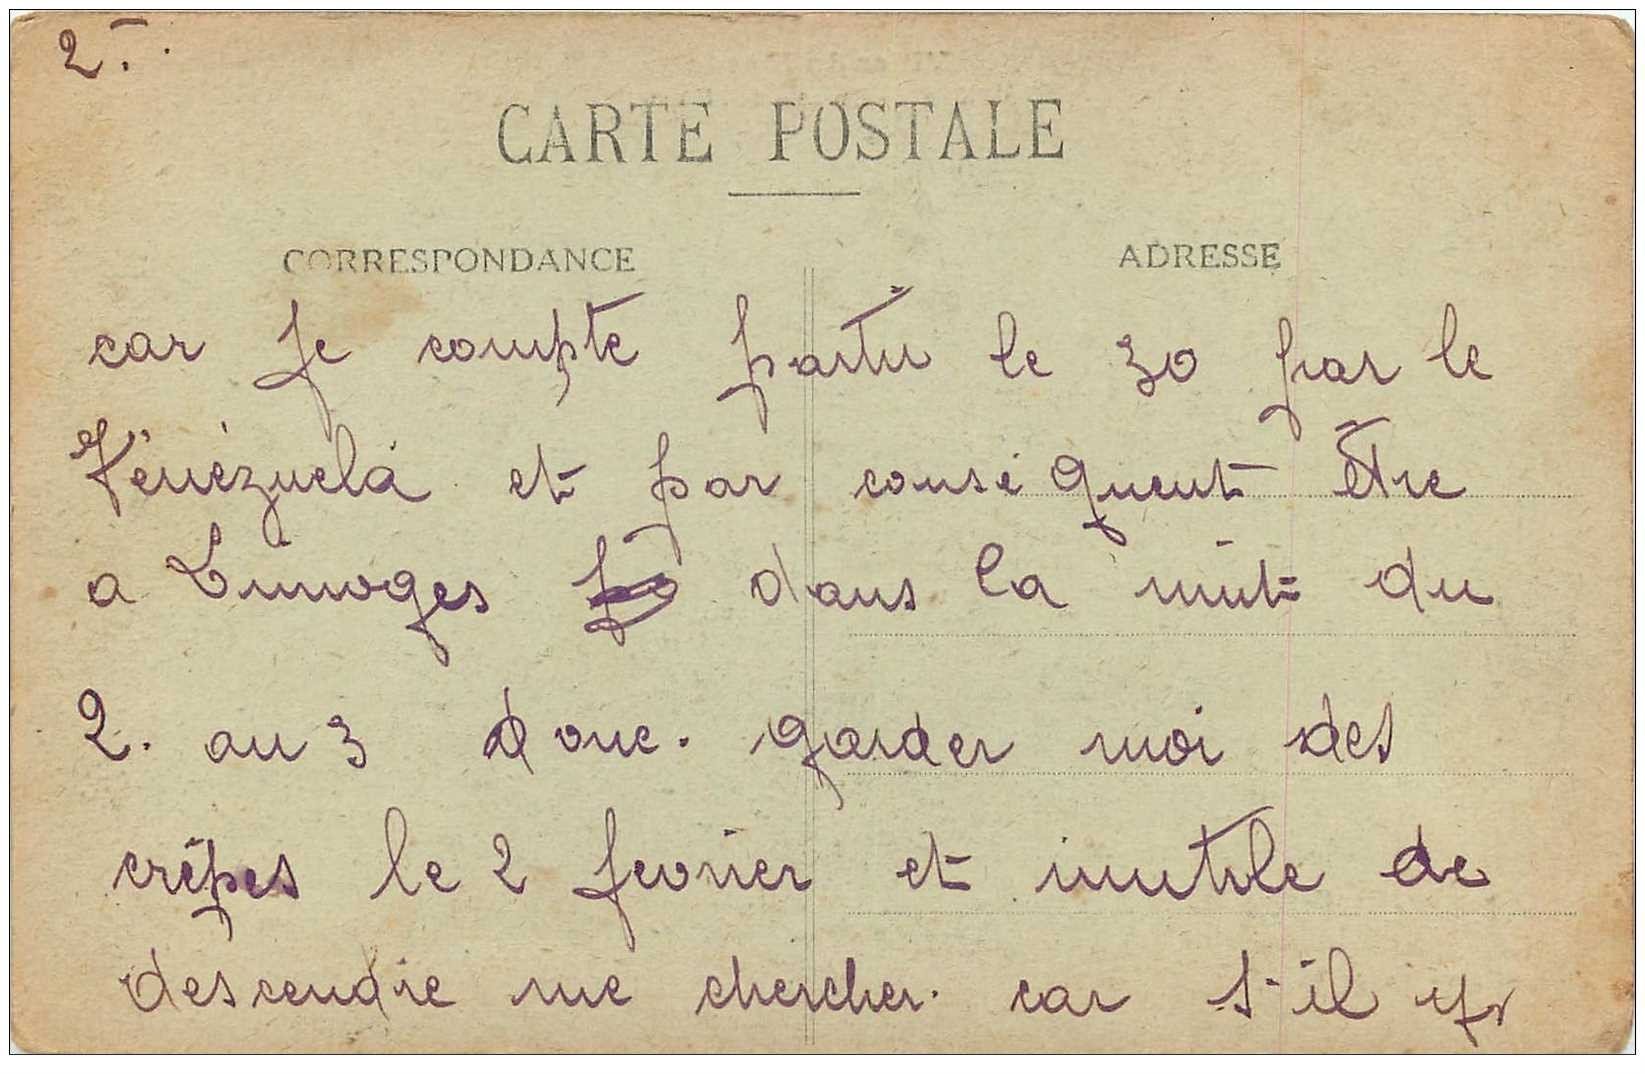 2.
CARTE POSTALE
CORRESPONDANCE
ADRESSE
car je compte partir le 30 par le
Vénézuela et par conséquent être
a Limoges dans la nuit du
2. au 3 donc. garder moi des
crêpes le 2 fevrier et inutile de
descendre me chercher. car s'il y